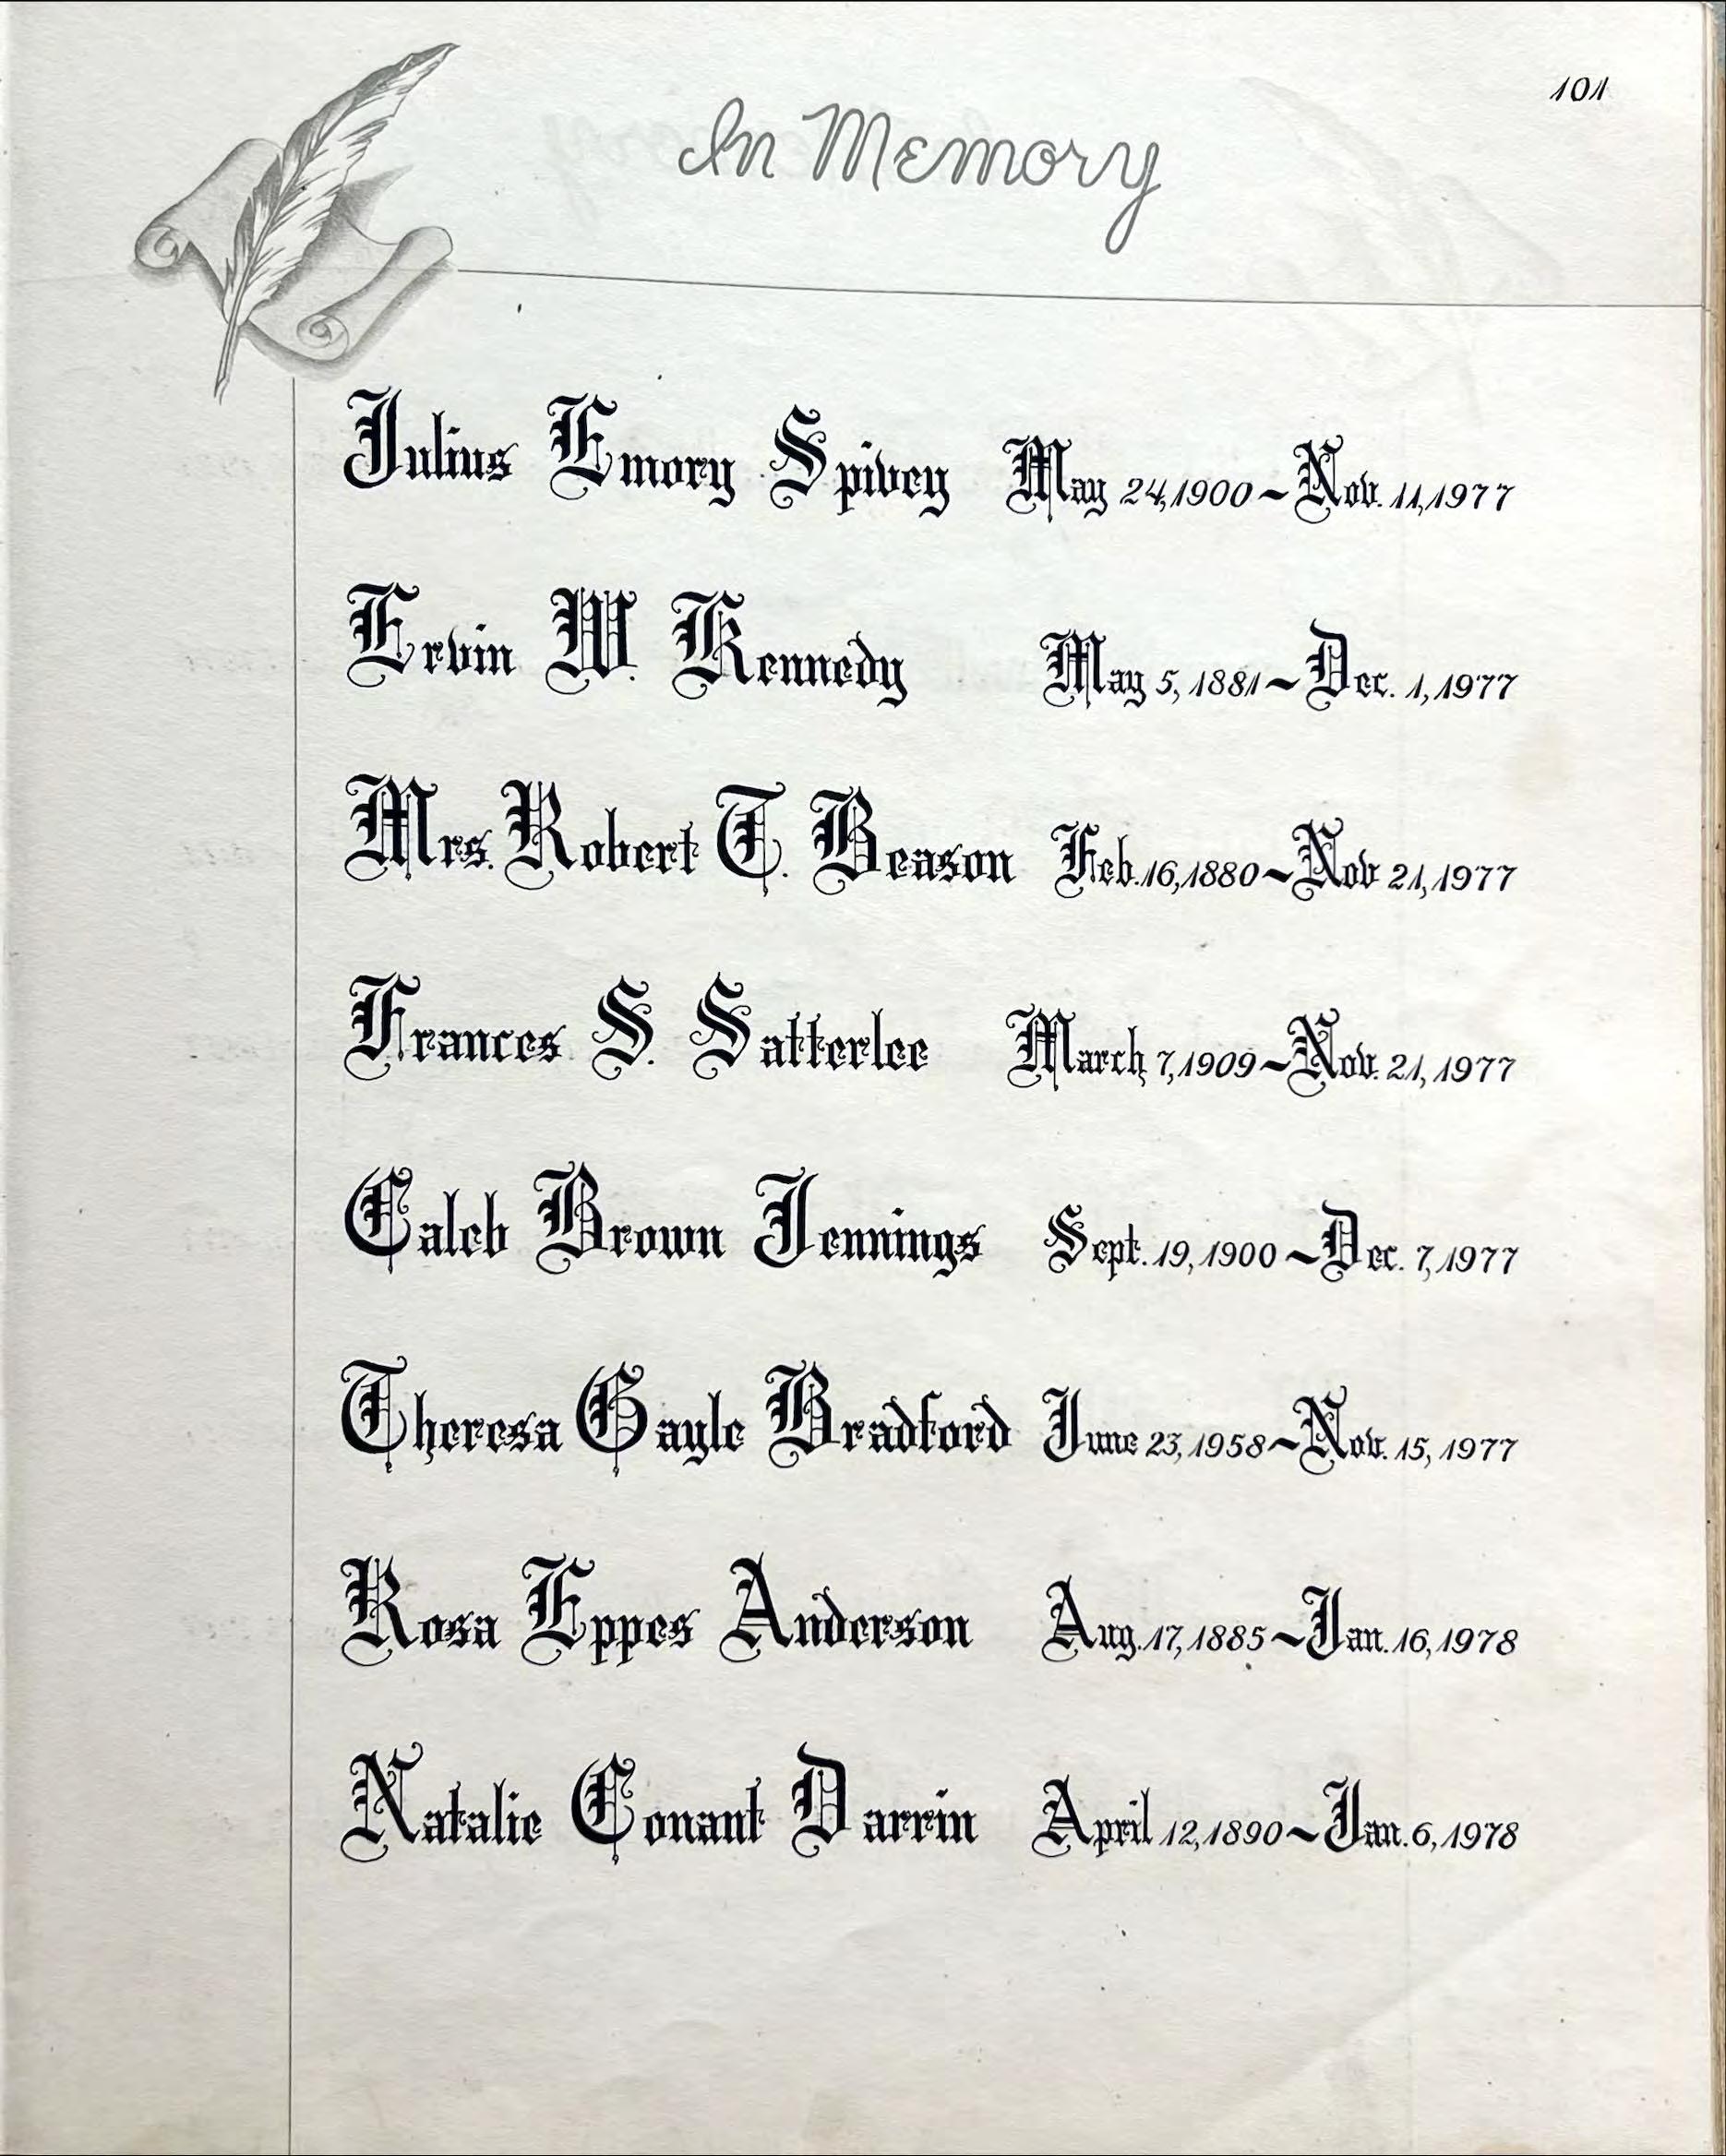 101
In Memory
Julius Emory Spivey May 24, 1900 ~ Nov. 11, 1977
Ervin W. Kennedy May 5, 1881 ~ Dec. 1, 1977
Mrs. Robert T. Beason Feb. 16, 1880 ~ Nov 21, 1977
Frances S. Satterlee March 7, 1909 ~ Nov. 21, 1977
Caleb Brown Jennings Sept. 19, 1900 ~ Dec. 7, 1977
Theresa Gayle Bradford June 23, 1958 ~ Nov. 15, 1977
Rosa Eppes Anderson Aug. 17, 1885 ~ Jan. 16, 1978
Natalie Conant Darrin April 12, 1890 ~ Jan. 6, 1978